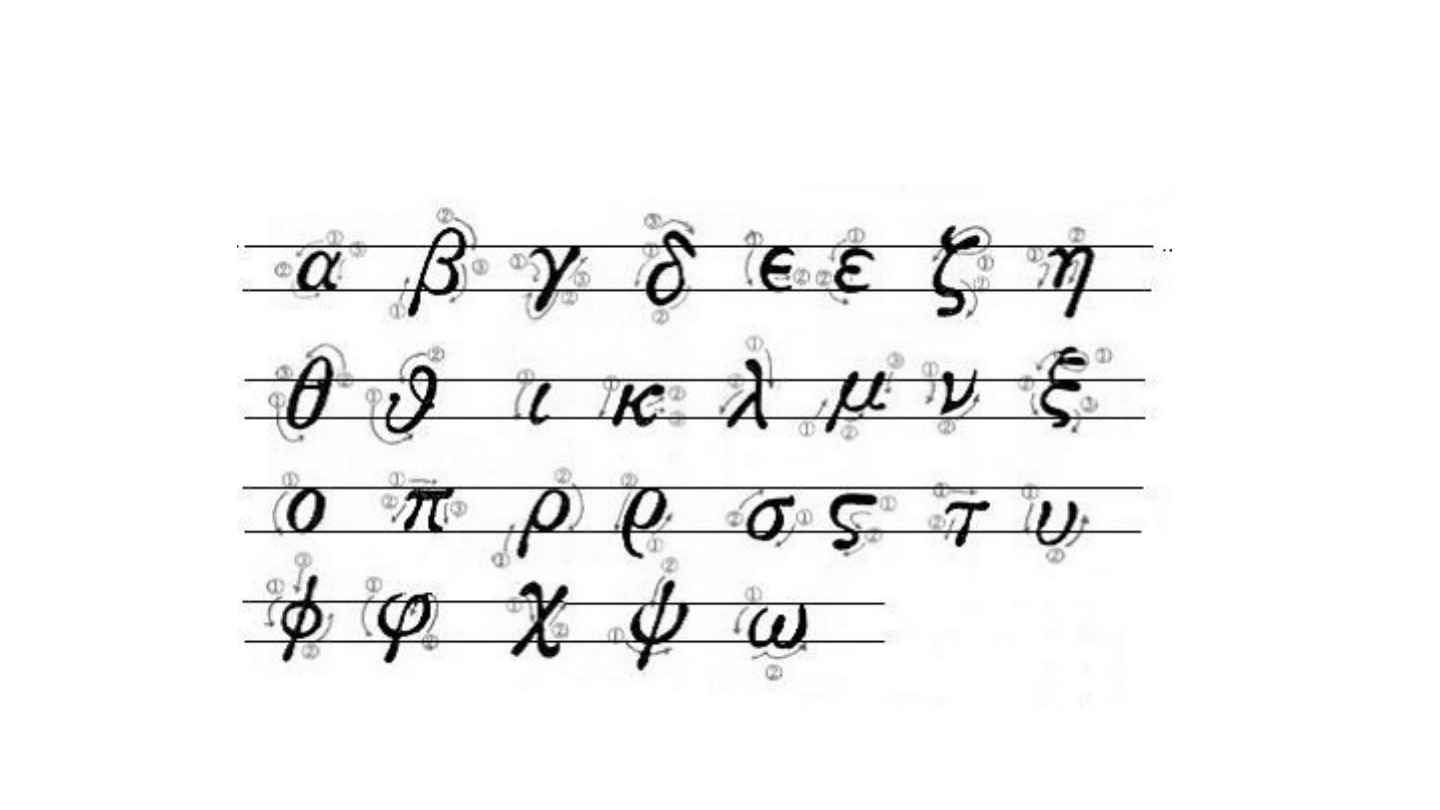 α β γ δ ϵ ε ζ η
θ ϑ ι κ λ μ ν ξ
ο π ρ ϱ σ ς τ υ
ϕ φ χ ψ ω